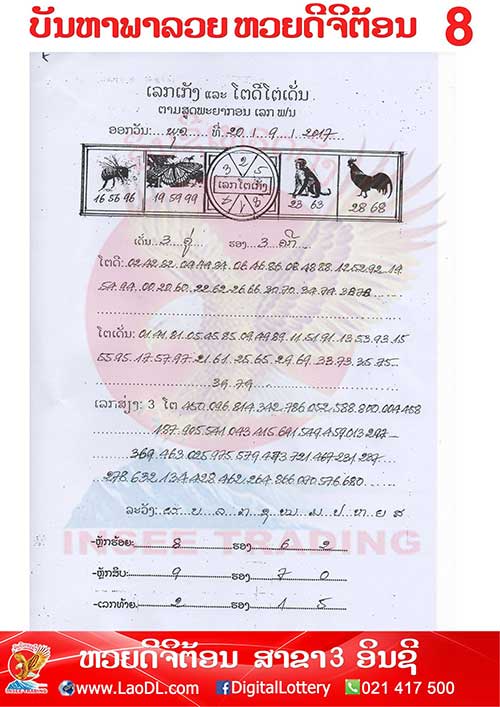 ບັນຫາພາລວຍ ຫວຍດີຈິຕ້ອນ 8
ເລກເກັ່ງ ແລະ ໂຕດີໂຕເດັ່ນ
ຕາມສູດພະຍາກອນ ເລກ ຟ/ນ
ອອກວັນ:... ພຸດ ... ທີ່ 20 / 9 / 2017
3 2 5
ເລກໂຕເກັ່ງ
16 56 96
19 59 99
23 63
28 68
ເດັ່ນ...2...ຄູ່.... ຮອງ...3...ຄີກ....
ໂຕດີ:
54.94.00.20.60.22.62.26.66.30.70.34.74.38.78
ໂຕເດັ່ນ: 01.41.81.05.45.85.09.49.89.11.51.91.13.53.93.15
55.95.17.57.97.21.61.25.65.29.69.33.73.35.75
39.79
ເລກສ່ຽງ: 3 ໂຕ 450.096.814.342.786.052.588.800.004.458
187.905.541.043.415.691.549.459.013.297
369.463.025.975.579.473.721.467.231.237
278.632.134.428.462.264.866.070.576.680
ລະວັງ:
INSEE TRADING
-ຫຼັກຮ້ອຍ: 8 ຮອງ 6 2
-ຫຼັກສິບ: 9 ຮອງ 7 0
-ເລກທ້າຍ. 2 ຮອງ 1 5
ຫວຍດີຈິຕ້ອນ ສາຂາ3 ອິນຊີ
INSEE TRADING
www.LaoDL.com DigitalLottery 021 417 500